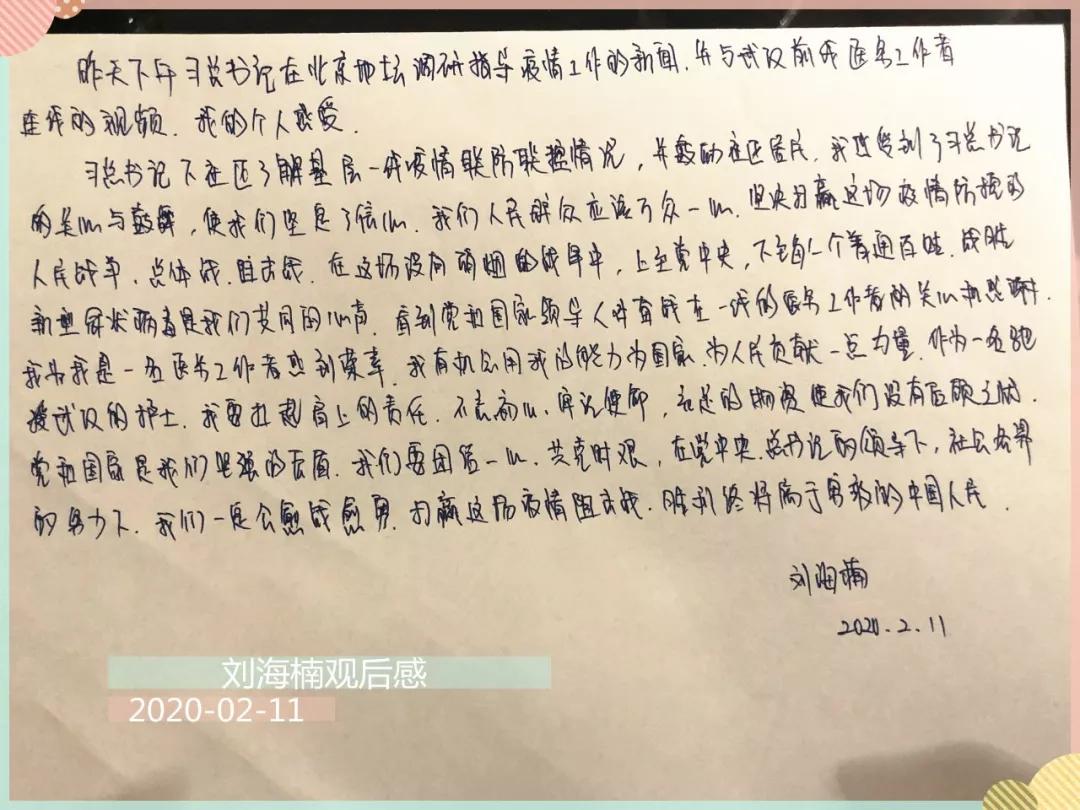 昨天下午习总书记在北京地坛调研指导疫情工作的新闻.并与武汉前线医务工作者
连线的视频.我的个人感受.
习总书记下社区了解基层一线疫情联防联控情况,并鼓励社区居民.我感受到了习总书记
的关心与鼓舞,使我们坚定了信心.我们人民群众应该万众一心.坚决打赢这场疫情防控的
人民战争、总体战.阻击战.在这场没有硝烟的战争中,上至党中央,下至每一个普通百姓.战胜
新型冠状病毒是我们共同的心声.看到党和国家领导人对奋战在一线的医务工作者的关心和慰问.
我为我是一名医务工作者感到荣幸.我有机会用我的能力为国家.为人民贡献一点力量.作为一名驰
援武汉的护士.我要扛起肩上的责任.不忘初心.牢记使命,充足的物资使我们没有后顾之忧.
党和国家是我们坚强的后盾.我们要团结一心.共克时艰,在党中央.总书记的领导下,社会各界
的努力下.我们一定会愈战愈勇.打赢这场疫情阻击战.胜利终将属于勇敢的中国人民.
刘海楠
2020.2.11
刘海楠观后感
2020-02-11